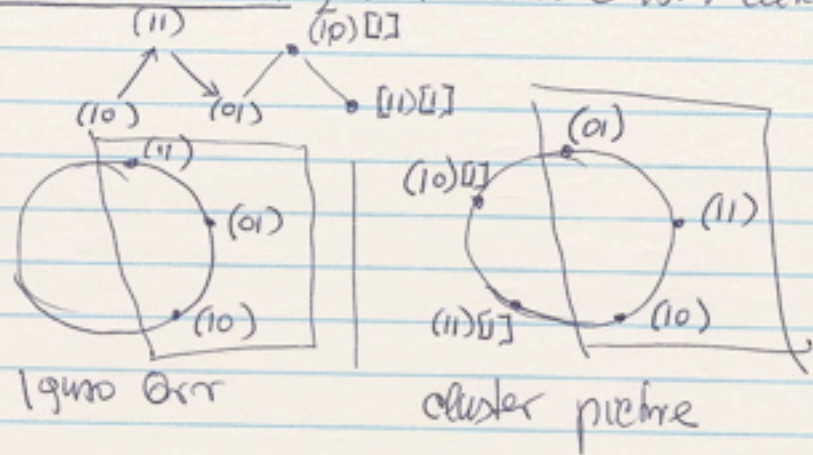 (11) (10)[1]
(10) (01) [11)[1]
(11) (01)
(10)[1]
(01) (11)
(11)[1] (10) (10)
Iguso Orr cluster picture